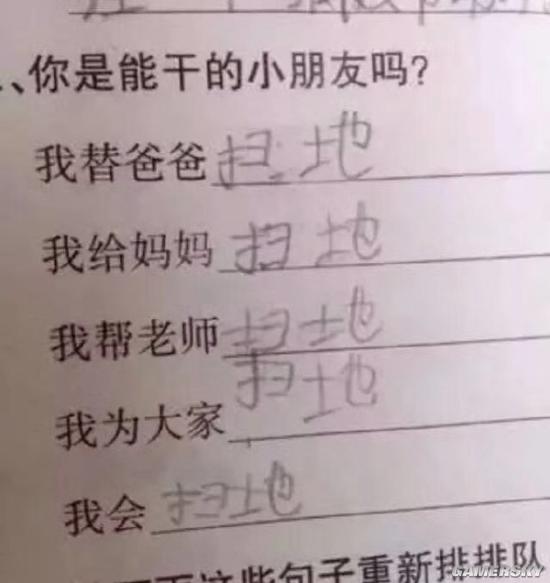 、你是能干的小朋友吗?
我替爸爸扫地
我给妈妈扫地
我帮老师扫地
我为大家扫地
我会扫地
这些句子重新排排队
GAMERSKY